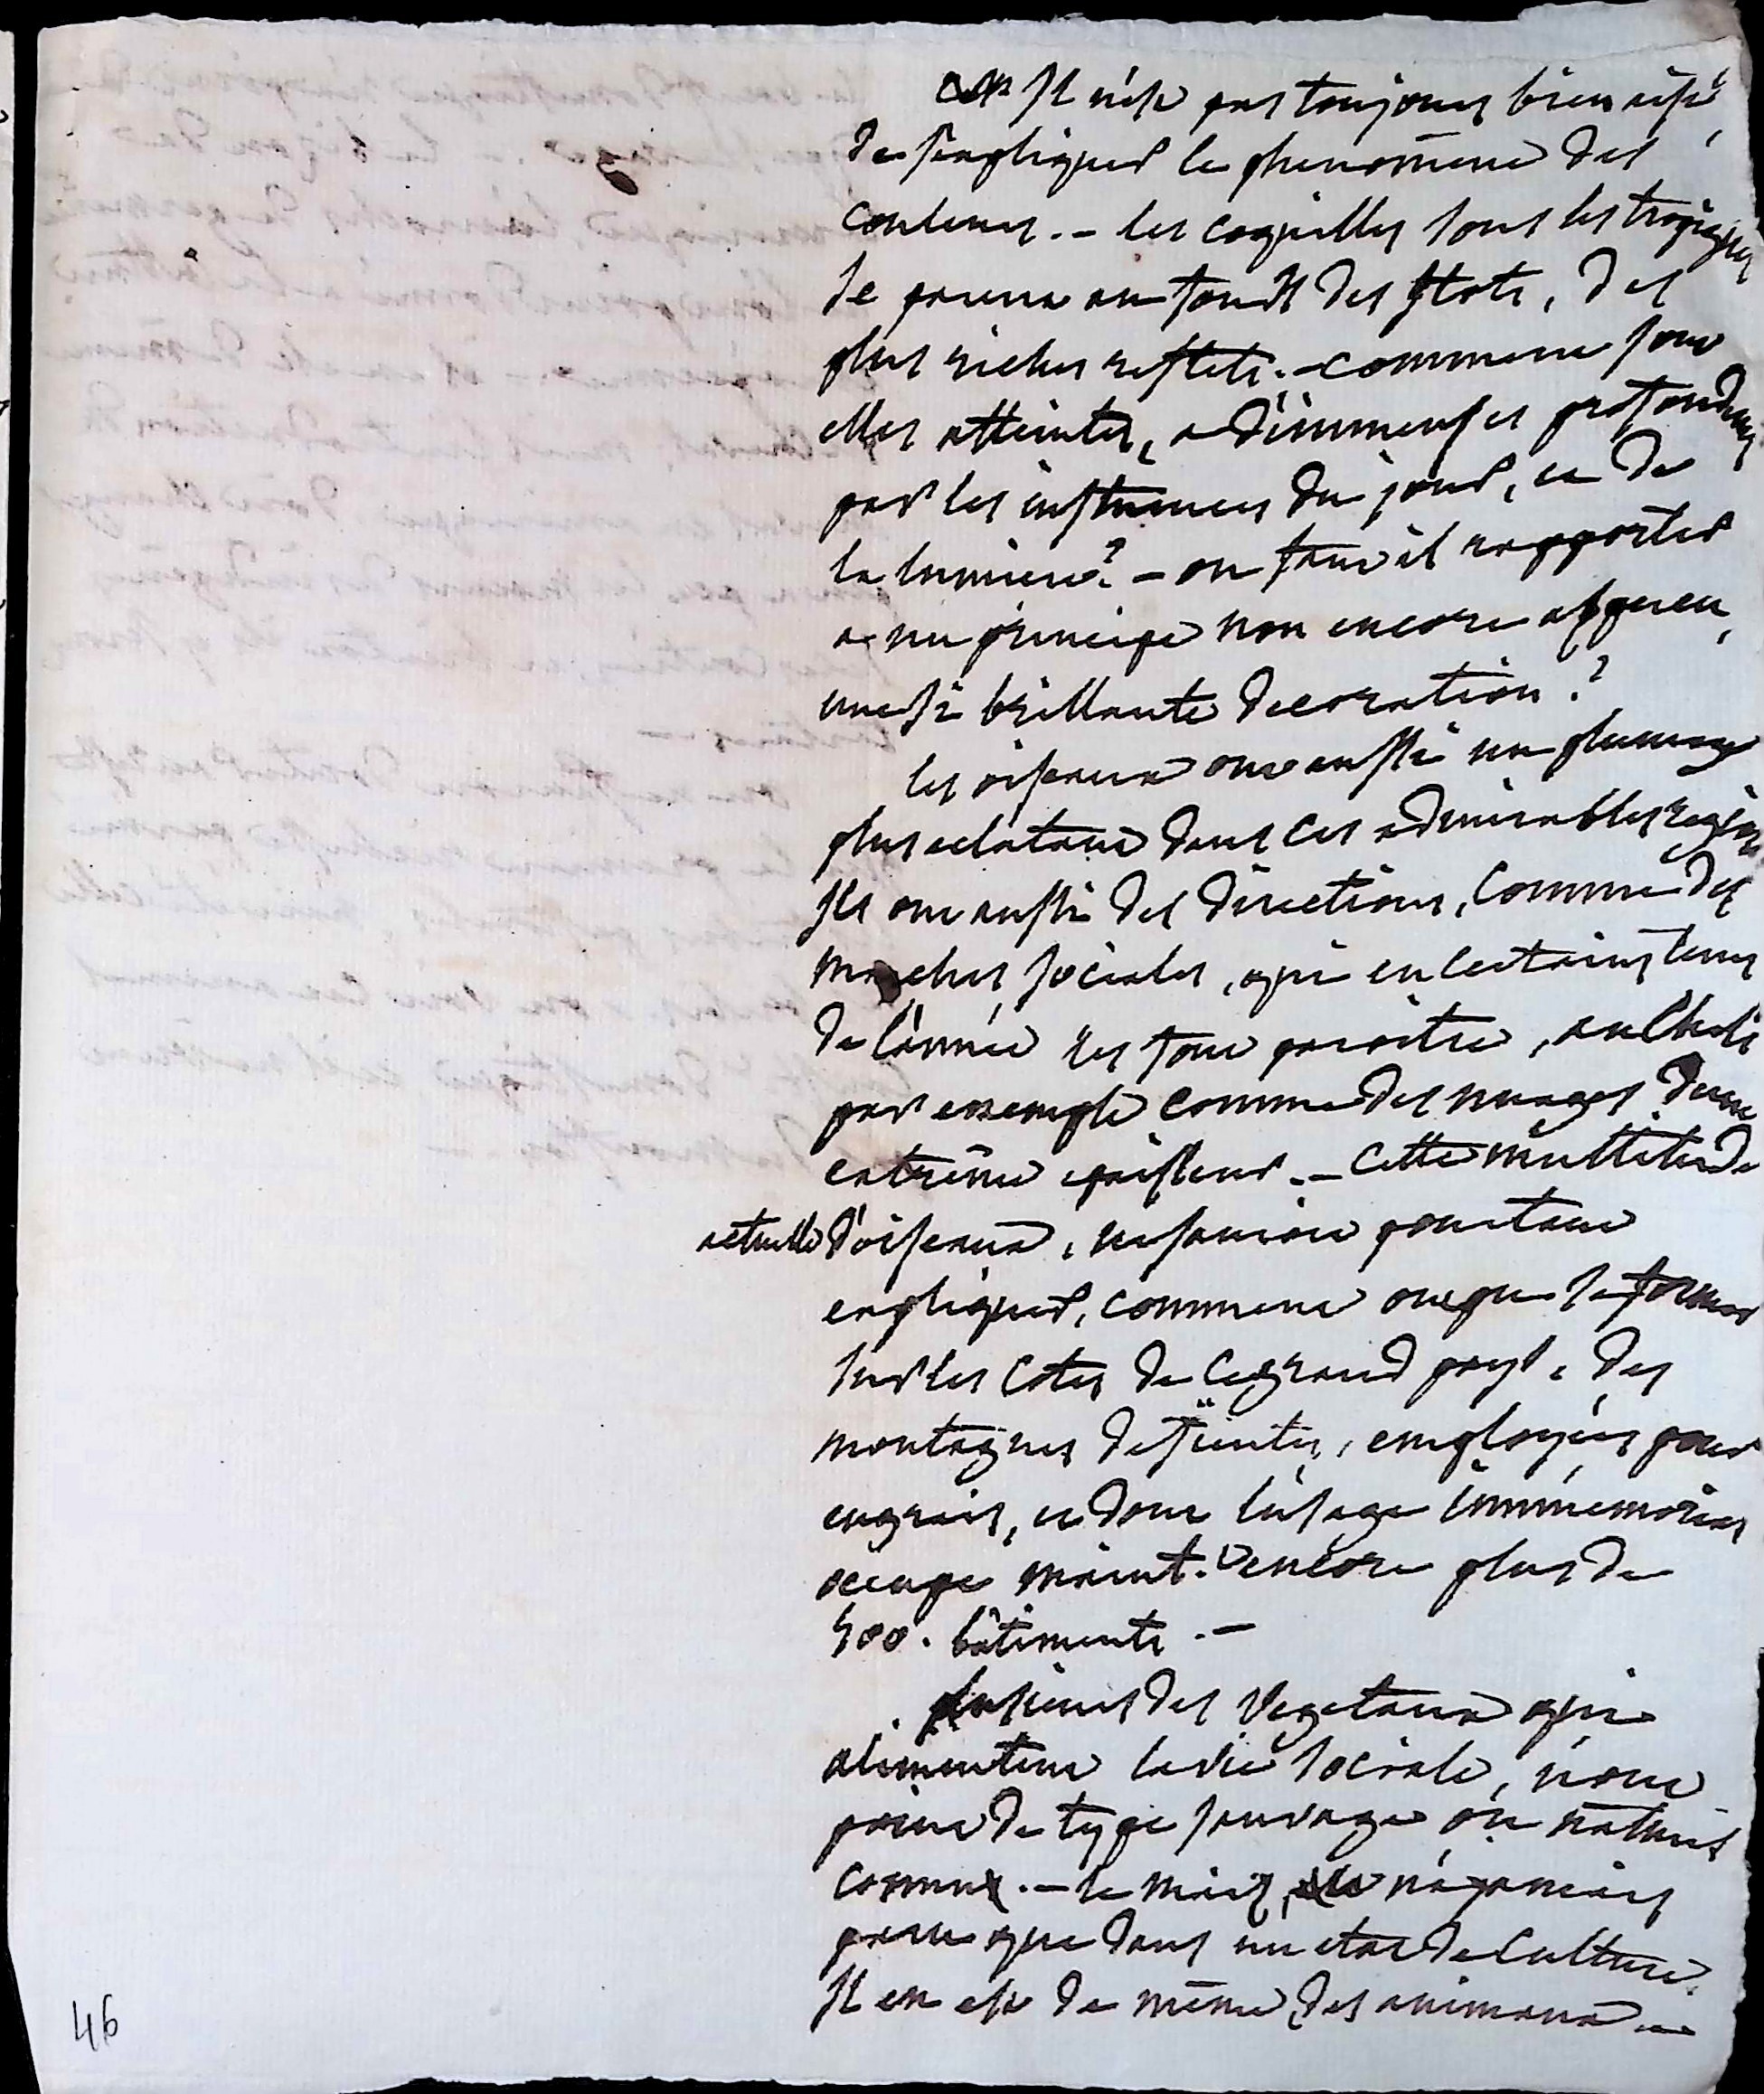 Il n'est pas toujours bien aisé,
de s'expliquer le phenomene des
couleurs. - les coquilles sous les tropiques
se parent au fond des flots, des
plus riches reflets. - comment sont
elles atteintes, a d'immenses profondeurs
par les influences du jour, et de
la lumiere? - ou faut il rapporter
a un principe non encore apperçu,
une si brillante decoration?
les oiseaux ont aussi un plumage
plus eclatant dans ces admirables regions
Ils ont aussi des directions, comme des
marches sociales, qui en certains tems
de l'année les font paroitre, au Chili
par exemple comme des nuages d'une
extrême epaisseur. - Cette multitude
actuelle d'oiseaux, ne sauroit pourtant
expliquer, comment ont pu se former
sur les Cotes de ce grand pays, des
montagnes de fientes, employées pour
engrais, et dont l'usage immemorial
occupe maint. encore plus de
400. bâtiments. -
plusieurs des vegetaux qui
alimentent la vie sociale, n'ont
point de type sauvage ou naturel
connu. - le maïs, n'a jamais
paru que dans un etat de Culture.
Il en est de même des animaux
46